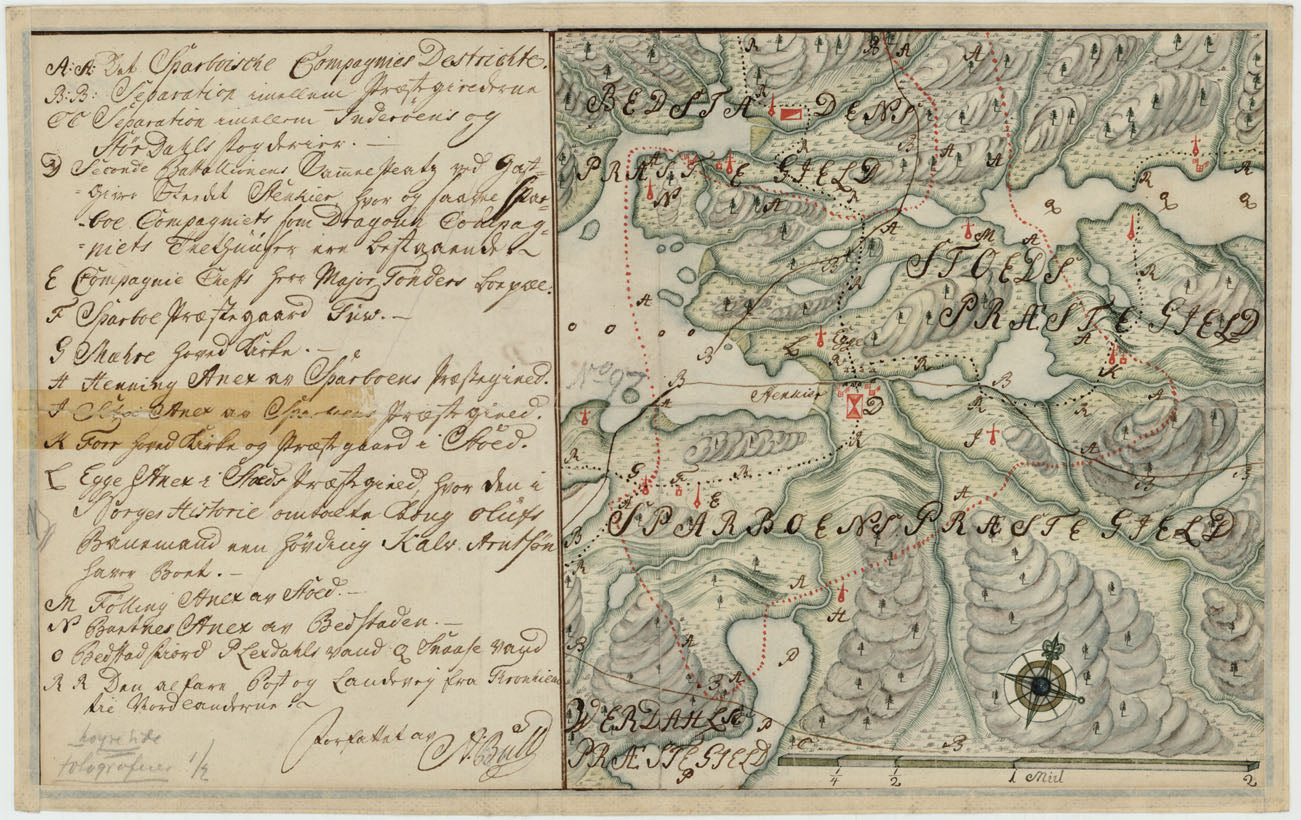 A: A: Det Sparboische Compagnies Destrickte.
B: B: Separation imellem Præstegiederne
CC Separation imellem Inderöens og
StorDahls fogderier. —
D Seconde Battallionens Sammelsted ved Gast-
giver Stedet Stenkier hvor og saavel Spar-
boe Compagniets som Dragoun Compag-
niets ere bestaaende
E Compagnie Chefs Herr Major Tönders
F Sparboe Præstegaard Tuw. —
G Mahre hoved Kirke. —
H Henning Anex av Sparboens Præstegield.
I Anex av Sparboens Præstgield.
K Forr hoved Kirke og Præstgaard i Stöed.
L Egge Anex i Stöeds Præstgield hvor den i
Norges Historie omtalte Kong Olufs
Banemand een hövding Kalv Arntsön
haver Boet. —
M Fölling Anex av Stöed. —
N Bartnes Anex av Bedstaden. —
O Bedstadfiord P Lexdahls vand Q Snaase vand
R R Den alfare Post og Landevej fra Tronhiem
til Nordlanderne
forfattet av
Bull
høyre side
fotograferes 1/2
BEDSTADENS
PRÆSTEGIELD
STOEDS
PRÆSTEGIELD
Egge
Stenkier
SPARBOENS PRÆSTEGIELD
WERDAHLS
PRÆSTEGIELD
1/4 1/2 1 Miil 2